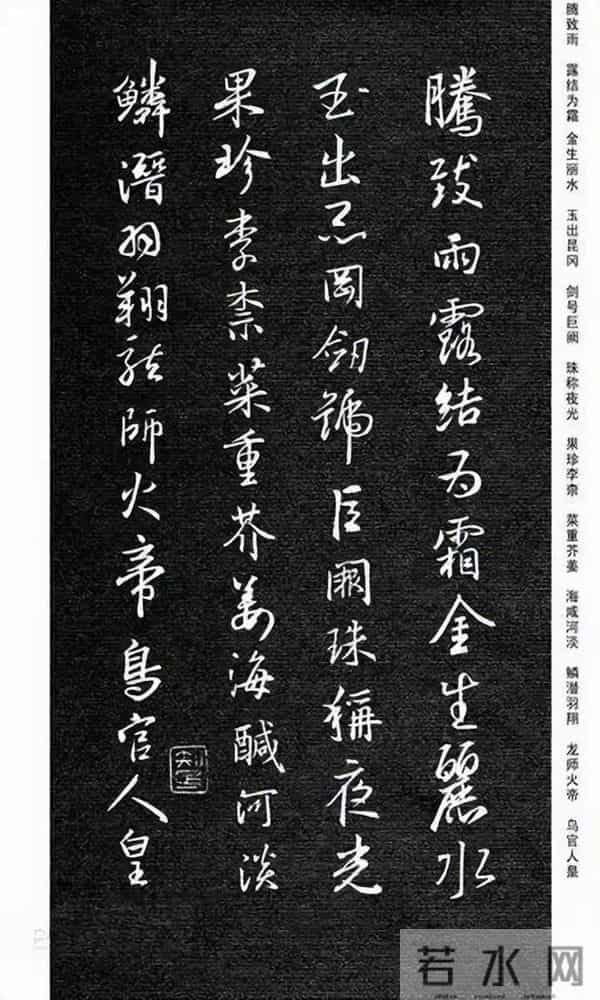 腾致雨 露结为霜 金生丽水 玉出昆冈 剑号巨阙 珠称夜光 果珍李柰 菜重芥姜 海咸河淡 鳞潜羽翔 龙师火帝 鸟官人皇
騰致雨露結为霜金生麗水
玉出崑岡劒號巨闕珠稱夜光
果珍李柰菜重芥姜海醎河淡
鱗潛羽翔龍師火帝鳥官人皇
若水网